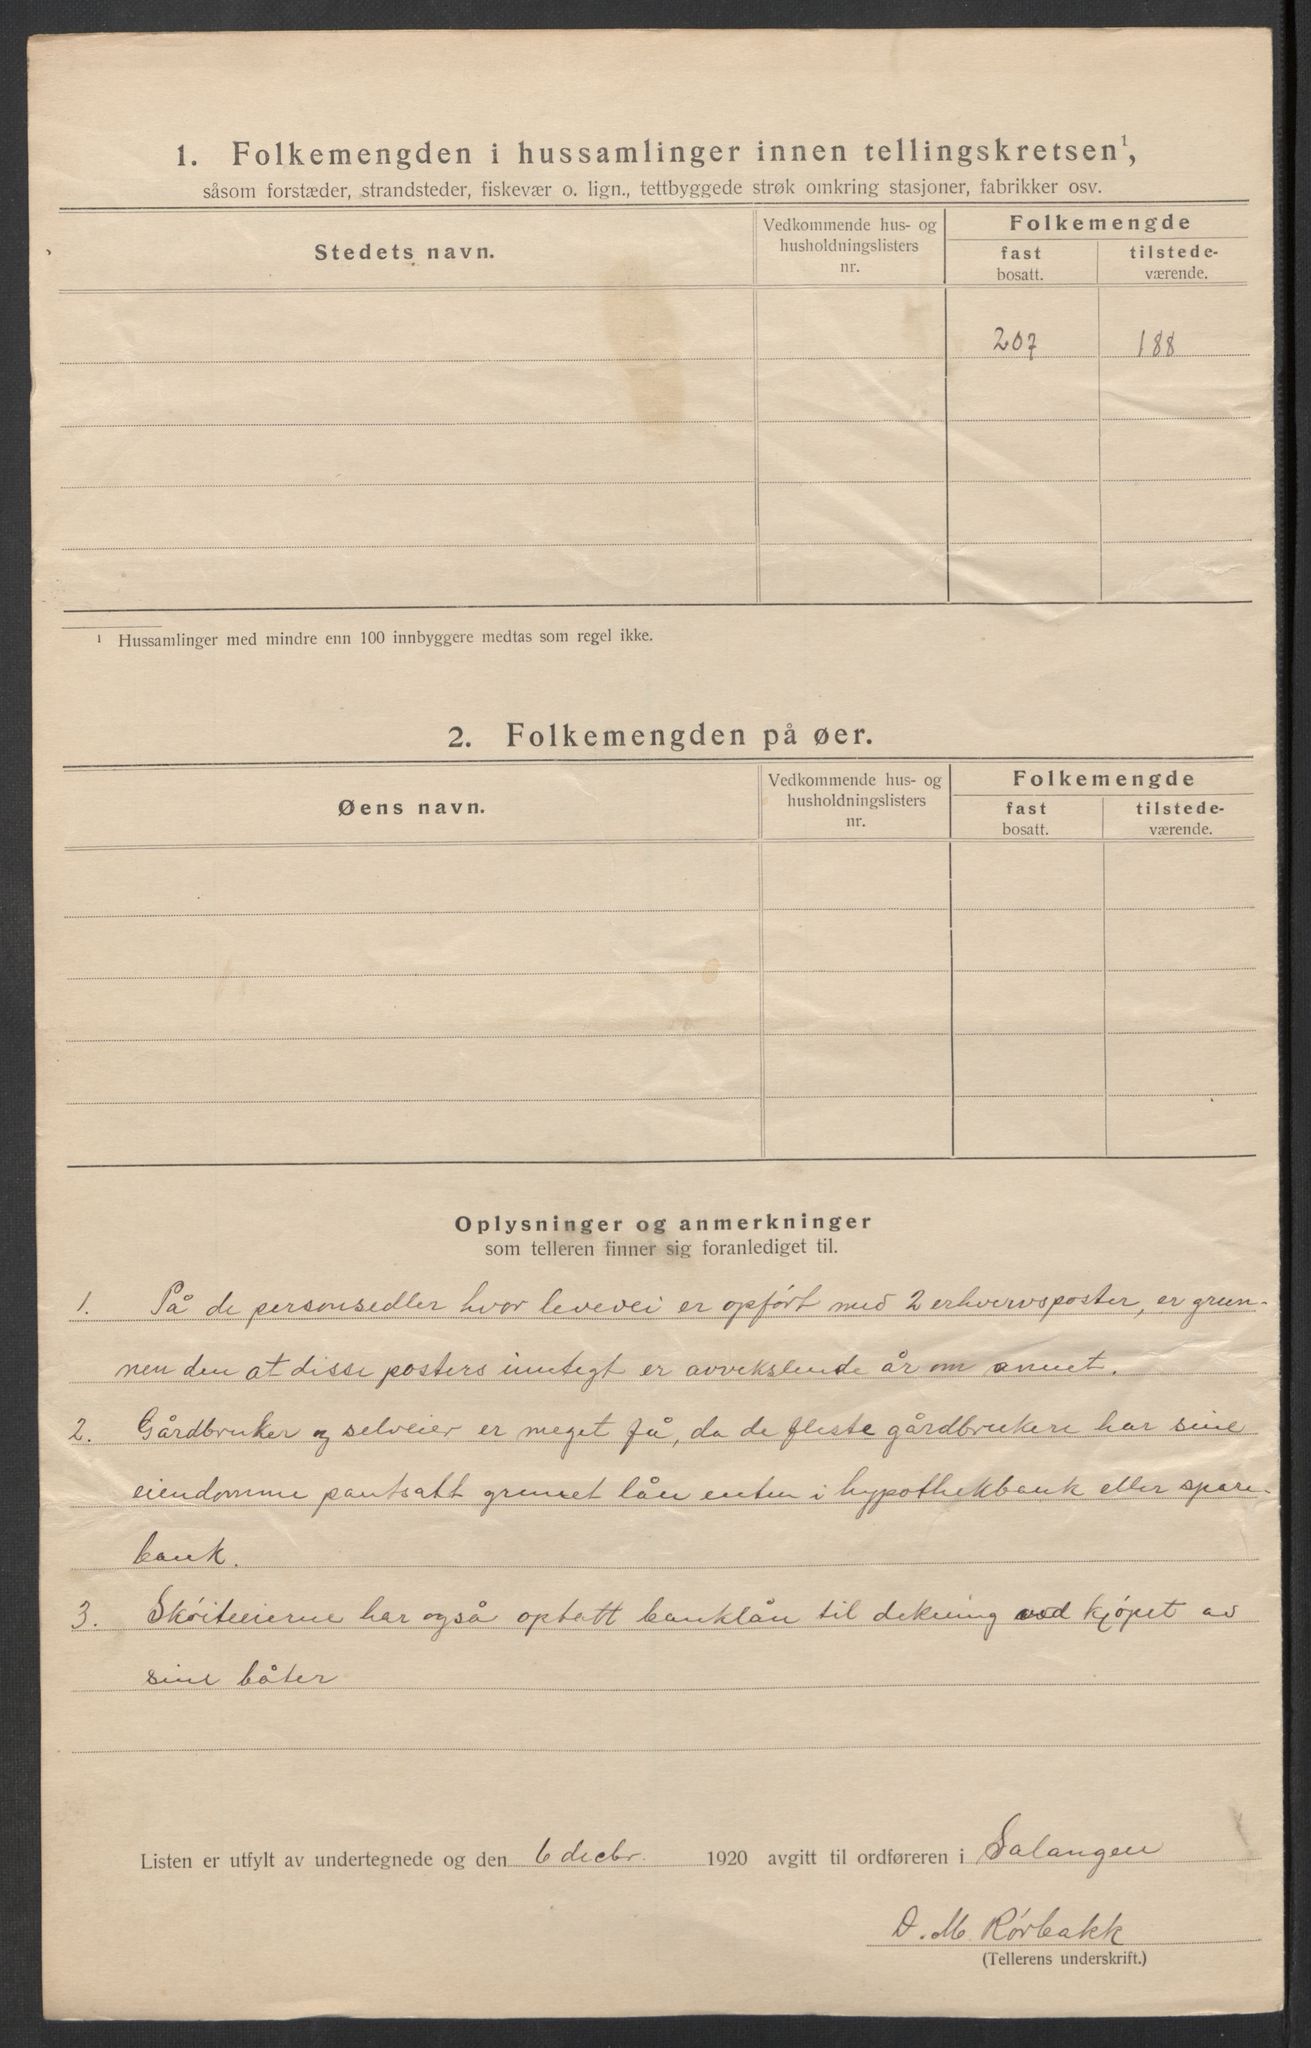 1. Folkemengden i hussamlinger innen tellingskretsen¹,
såsom forstæder, strandsteder, fiskevær o. lign., tettbyggede strøk omkring stasjoner, fabrikker osv.
Stedets navn.
Vedkommende hus- og
husholdningslisters
nr.
Folkemengde
fast
bosatt.
tilstede-
værende.
207 188
¹ Hussamlinger med mindre enn 100 innbyggere medtas som regel ikke.
2. Folkemengden på øer.
Øens navn.
Vedkommende hus- og
husholdningslisters
nr.
Folkemengde
fast
bosatt.
tilstede-
værende.
Oplysninger og anmerkninger
som telleren finner sig foranlediget til.
1. På de personsedler hvor levevei er opført med 2 erhvervsposter, er grun-
nen den at disse posters inntegt er avvekslende år om annet.
2. Gårdbruker og selveier er meget få, da de fleste gårdbrukere har sine
eiendomme pantsatt grunnet lån enten i hypothekbank eller spare-
bank.
3. Skøiteeierne har også optatt banklån til dekning ved kjøpet av
sine båter
Listen er utfylt av undertegnede og den 6 decbr. 1920 avgitt til ordføreren i Salangen
D. M. Rørbakk
(Tellerens underskrift.)